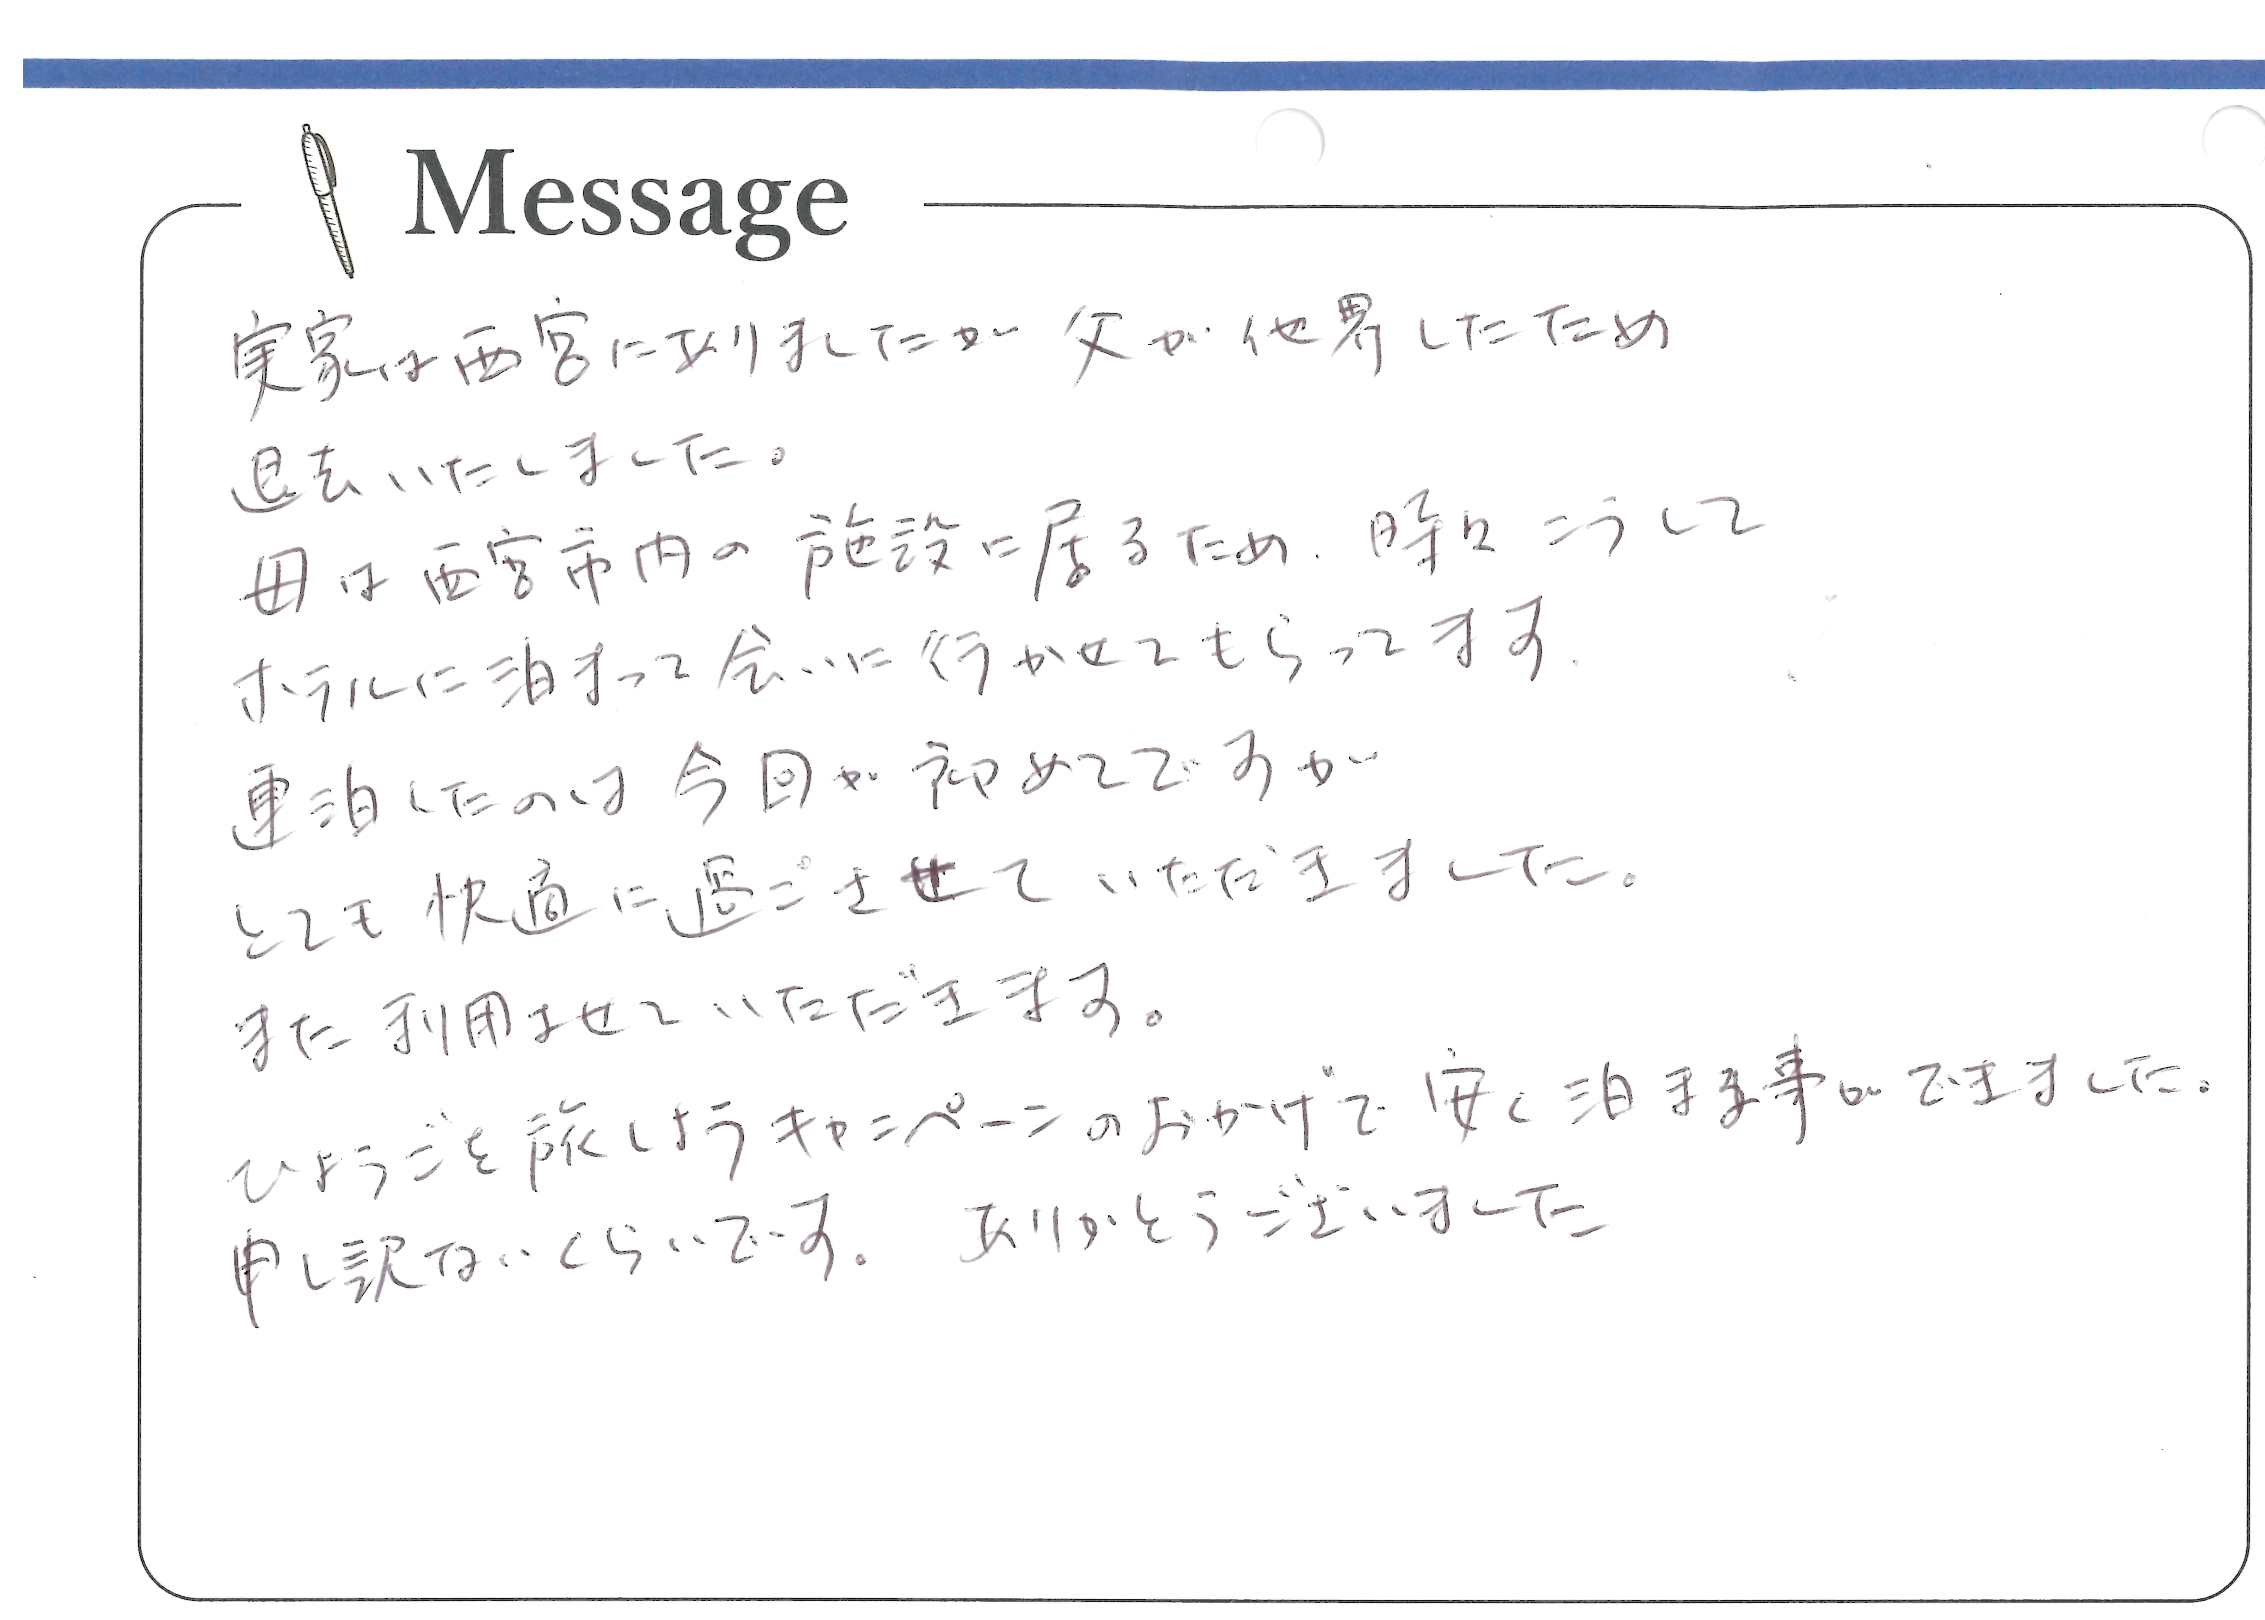 Message
実家は西宮にありましたが 父が他界したため
退去いたしました。
母は西宮市内の施設に居るため、時々こうして
ホテルに泊まって会いに行かせてもらってます。
連泊したのは今回が初めてですが
とても快適に過ごさせていただきました。
また利用させていただきます。
ひょうごを旅しようキャンペーンのおかげで安く泊まる事ができました。
申し訳ないくらいです。 ありがとうございました